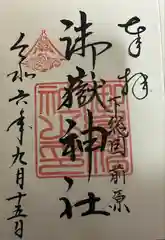 奉拝
下飛田前原
御嶽神社
令和六年九月十五日